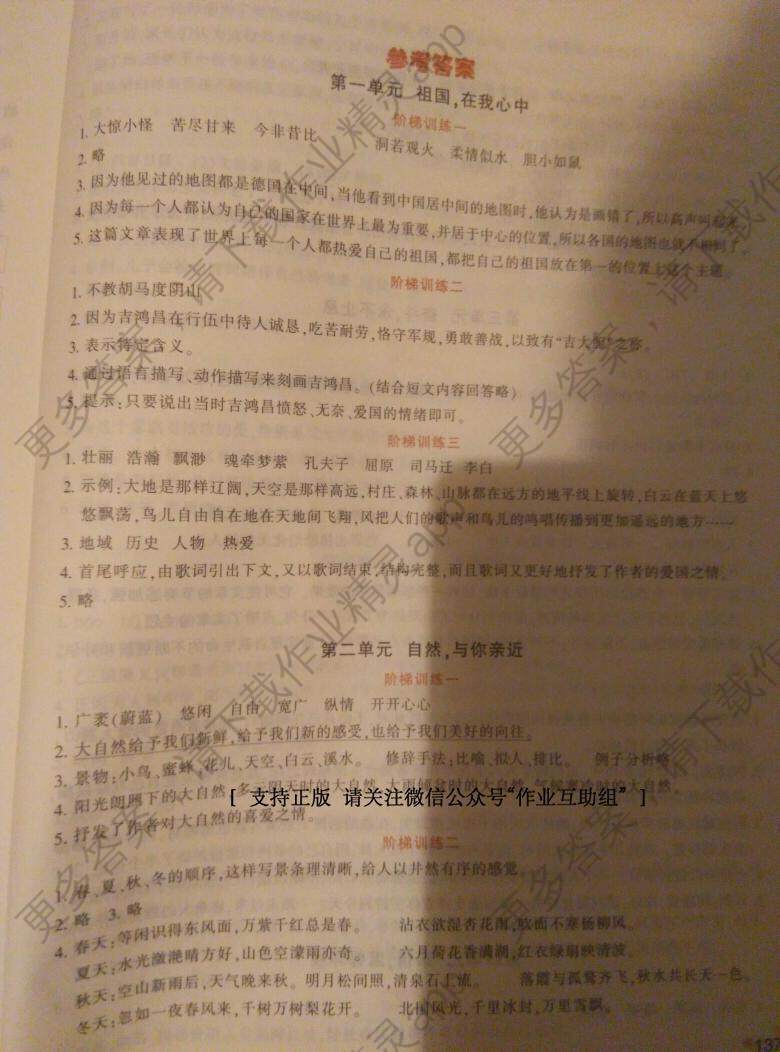 参考答案
第一单元 祖国,在我心中
阶梯训练一
1. 大惊小怪 苦尽甘来 今非昔比 洞若观火 柔情似水 胆小如鼠
2. 略
3. 因为他见过的地图都是德国在中间,当他看到中国居中间的地图时,他认为是画错了,所以高声叫起来
4. 因为每一个人都认为自己的国家在世界上最为重要,并居于中心的位置,所以各国的地图也就不相同了。
5. 这篇文章表现了世界上每一个人都热爱自己的祖国,都把自己的祖国放在第一的位置上这个主题。
阶梯训练二
1. 不教胡马度阴山
2. 因为吉鸿昌在行伍中待人诚恳,吃苦耐劳,恪守军规,勇敢善战,以致有“吉大胆”之称。
3. 表示特定含义。
4. 通过语言描写、动作描写来刻画吉鸿昌。(结合短文内容回答略)
5. 提示:只要说出当时吉鸿昌愤怒、无奈、爱国的情绪即可。
阶梯训练三
1. 壮丽 浩瀚 飘渺 魂牵梦萦 孔夫子 屈原 司马迁 李白
2. 示例:大地是那样辽阔,天空是那样高远,村庄、森林、山脉都在远方的地平线上旋转,白云在蓝天上悠
悠飘荡,鸟儿自由自在地在天地间飞翔,风把人们的歌声和鸟儿的鸣唱传播到更加遥远的地方……
3. 地域 历史 人物 热爱
4. 首尾呼应,由歌词引出下文,又以歌词结束,结构完整,而且歌词又更好地抒发了作者的爱国之情。
5. 略
第二单元 自然,与你亲近
阶梯训练一
1. 广袤(蔚蓝) 悠闲 自由 宽广 纵情 开开心心
2. 大自然给予我们新鲜,给予我们新的感受,也给予我们美好的向往。
3. 景物:小鸟、蜜蜂、花儿、天空、白云、溪水。 修辞手法:比喻、拟人、排比。 例子分析略
4. 阳光朗照下的大自然,多云阴天时的大自然,大雨倾盆时的大自然,气候寒冷时的大自然。
[ 支持正版 请关注微信公众号“作业互助组” ]
5. 抒发了作者对大自然的喜爱之情。
阶梯训练二
1. 春、夏、秋、冬的顺序,这样写景条理清晰,给人以井然有序的感觉。
2. 略 3. 略
4. 春天:等闲识得东风面,万紫千红总是春。 沾衣欲湿杏花雨,吹面不寒杨柳风。
夏天:水光潋滟晴方好,山色空濛雨亦奇。 六月荷花香满湖,红衣绿扇映清波。
秋天:空山新雨后,天气晚来秋。明月松间照,清泉石上流。 落霞与孤鹜齐飞,秋水共长天一色。
冬天:忽如一夜春风来,千树万树梨花开。 北国风光,千里冰封,万里雪飘。
更多答案,请下载作业精灵app